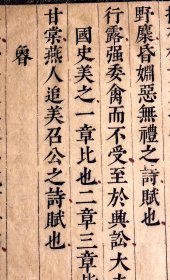 野麕昏婣惡無禮之詩賦也
行露强委禽而不受至於興訟大夫
國史美之一章比也二章三章皆
甘棠燕人追美召公之詩賦也